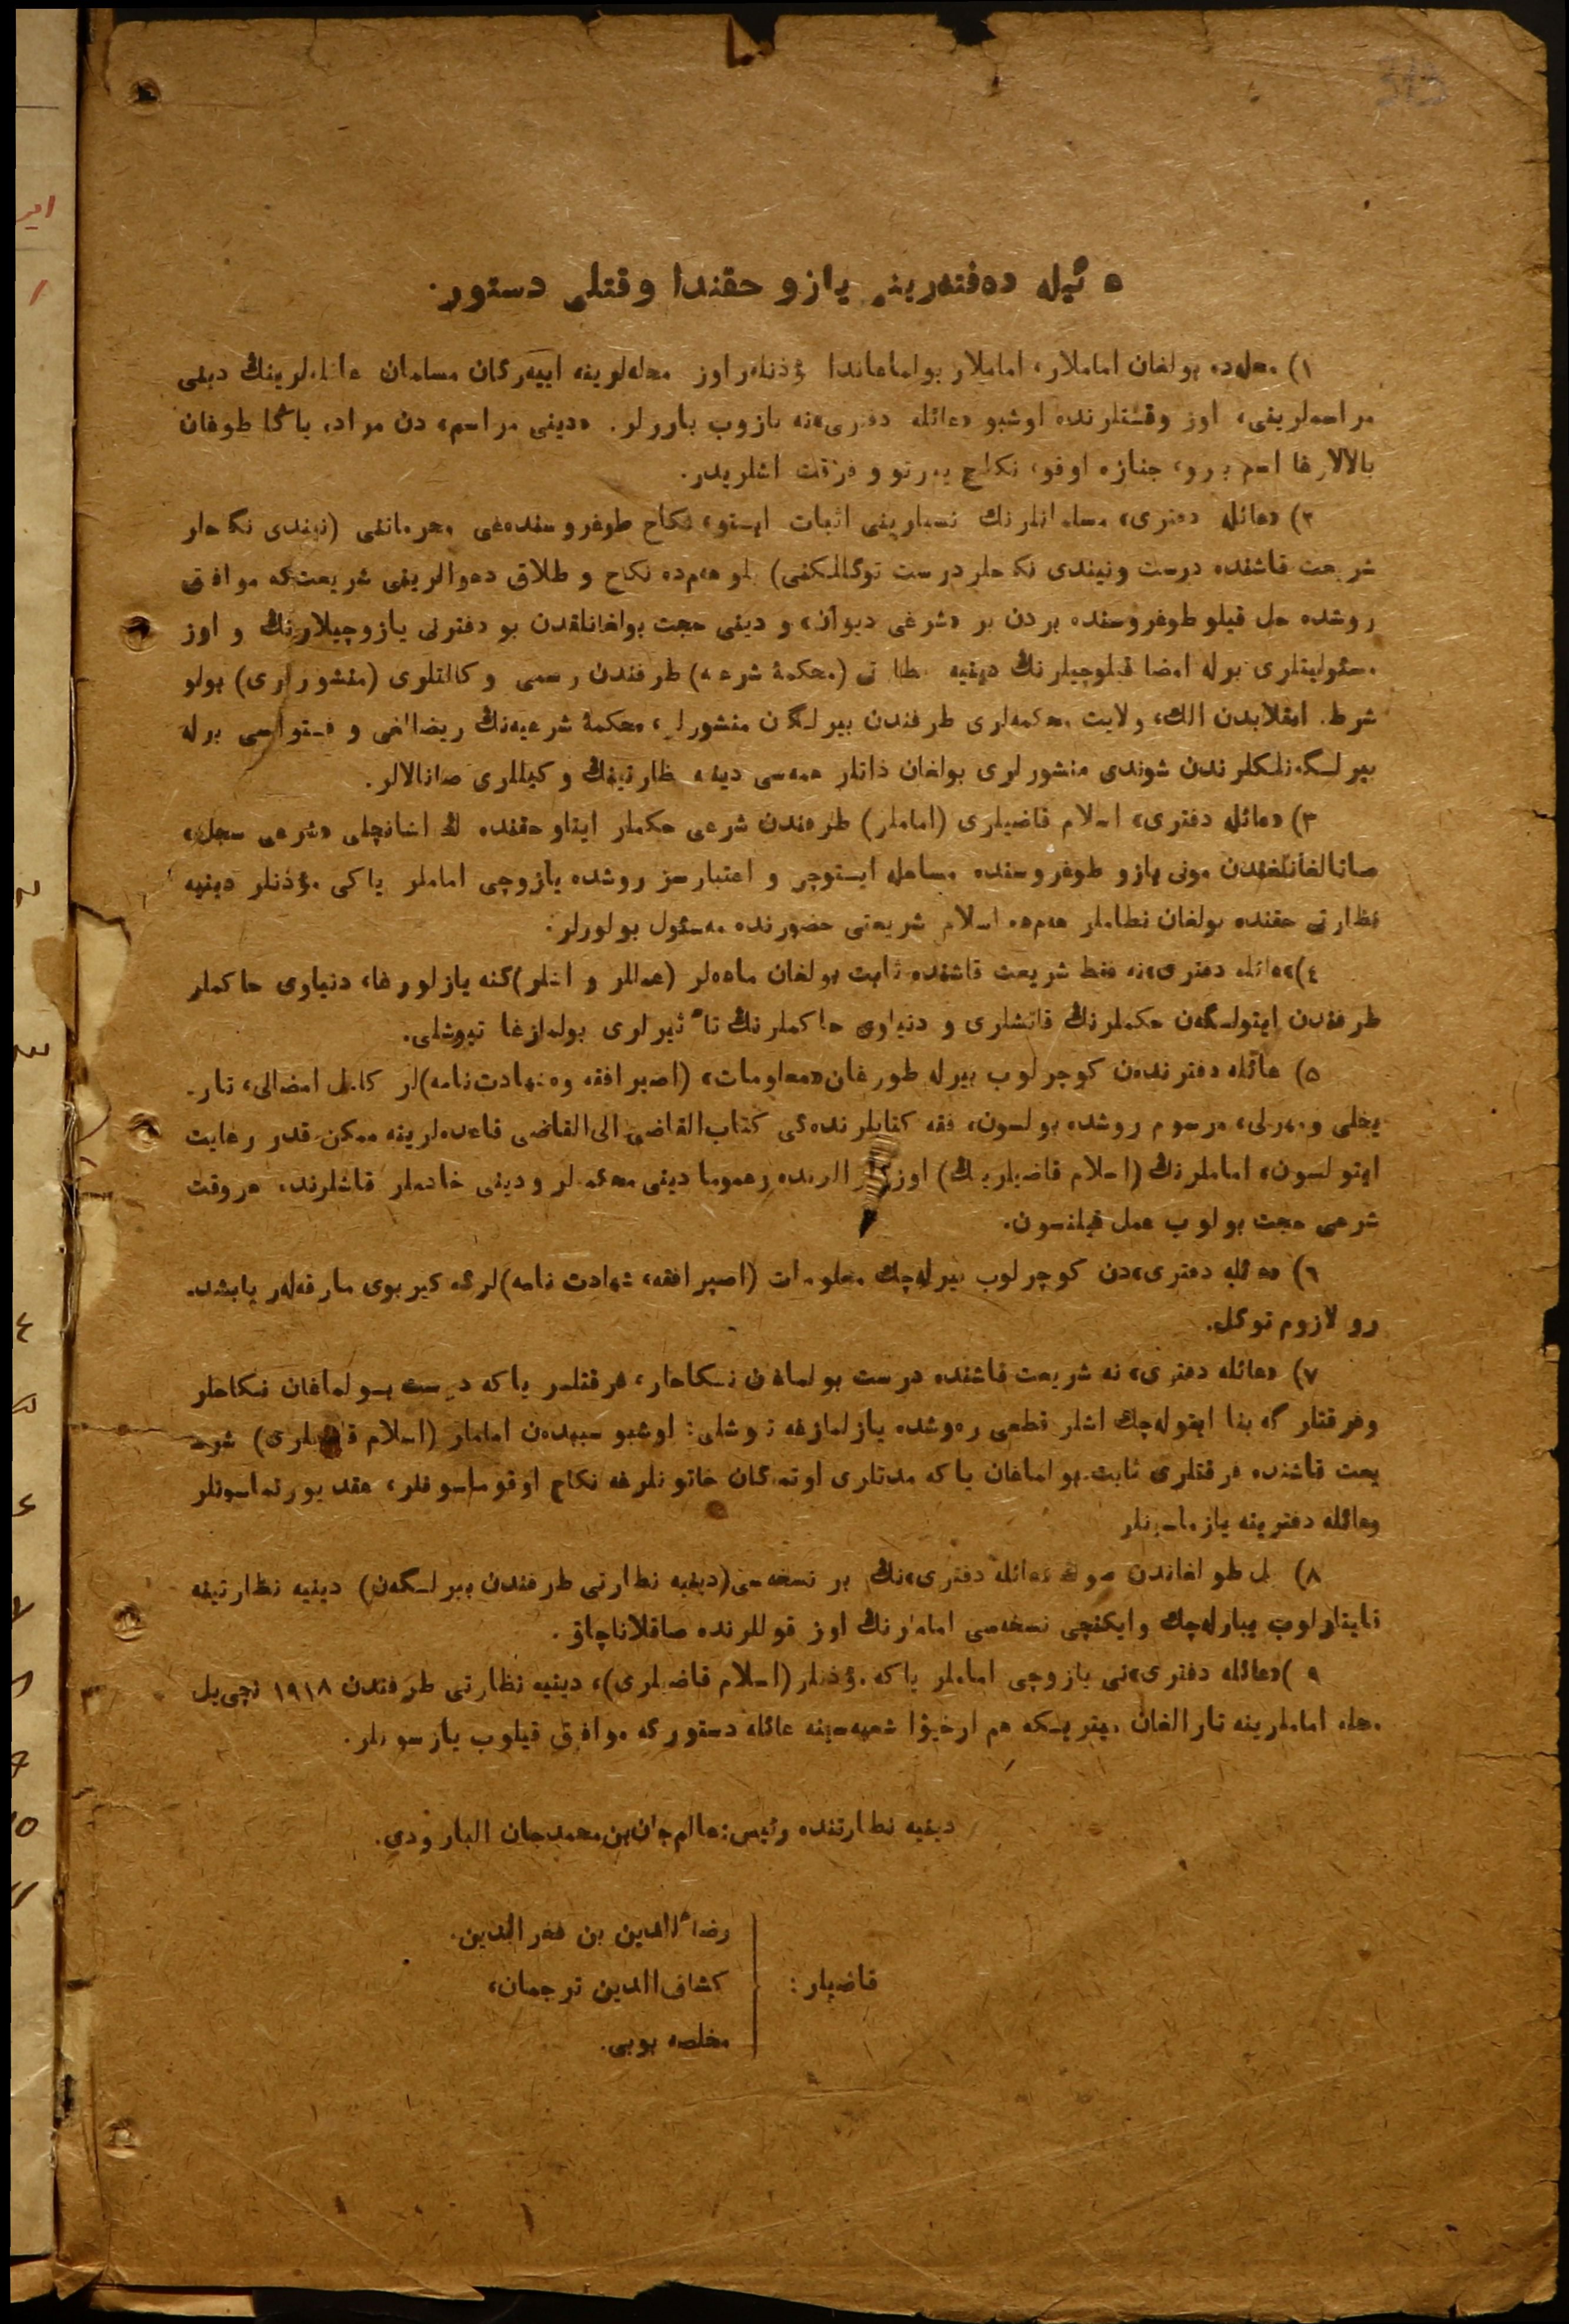 ئيله دەفتەرينى يازو حقندا وقتلى دستور.
١) محله‌ده بولغان اماملار، اماملار بولماغاندا مؤذنلەر اوز محله‌لرينه اييەرگان مسلمان عائله‌لرينڭ دينى
مراسملرينى، اوز وقتلرنده اوشبو «عائله دفترى»نه يازوب باررلر. «دينى مراسم» دن مراد، ياڭا طوغان
بالالارغا اسم بيرو، جنازه اوقو، نكاح يورتو و فرقت اشلريدر.
٢) «عائله دفترى» مسلمانلرنڭ نسبلرينى اثبات ايتو، نكاح طوغروسنده‌غى محرماتنى (نيندى نكاحلر
شريعت قاشنده درست ونيندى نكاحلر درست توگللكنى) بلو هم‌ده نكاح و طلاق دعوالرينى شريعت‌كه موافق
روشده حل قيلو طوغروسنده بردن بر «شرعى ديوان» و دينى حجت بولغانلقدن بو دفترنى يازوچيلارنڭ و اوز
مسئوليتلرى برله امضا قيلوچيلرنڭ دينيه نظارتى (محكمهٔ شرعيه) طرفندن رسمى وكالتلرى (منشورلرى) بولو
شرط. انقلابدن الك، ولايت محكمه‌لرى طرفندن بيرلگان منشورلر، محكمهٔ شرعيه‌نڭ ريضالغى و فتواسى برله
بيرلگه‌نلكلرندن شوندى منشورلرى بولغان ذاتلر همه‌سى دينيه نظارتينڭ وكيللرى صانالالر.
٣) «عائله دفترى» اسلام قاضيلرى (اماملر) طرفندن شرعى حكملر ايتلو حقنده اڭ اشانچلى «شرعى سجل»
صانالغانلغندن مونى يازو طوغروسنده مساهله ايستوچى و اعتبارسز روشده يازوچى اماملر ياكى مؤذنلر دينيه
نظارتى حقنده بولغان نظاملر هم‌ده اسلام شريعتى حضورنده مسئول بولورلر.
٤) «عائله دفترى»نه فقط شريعت قاشنده ثابت بولغان ماده‌لر (عمللر و اشلر) گنه يازلورغا، دنياوى حاكملر
طرفندن ايتولگەن حكملرنڭ قاتشلرى و دنياوى حاكملرنڭ تأثيرلرى بولمازغا تيوشلى.
٥) عائله دفترندەن كوچرلوب بيرله طورغان «معلومات» (اصپرافقه وشهادت‌نامه)لر كامل امضالى، تار‍ـ
يخلى ومهرلى، مرسوم روشده بولسون، فقه كتابلرنده‌گى كتاب‌القاضى الى‌القاضى قاعده‌لرينه ممكن قدر رعايت
ايتولسون، اماملرنڭ (اسلام قاضيلرينڭ) اوز آرالرنده وعموما دينى محكمه‌لر ودينى خادملر قاشلرنده هروقت
شرعى حجت بولوب عمل قيلنسون.
٦) «عائله دفترى»دن كوچرلوب بيرله‌چك معلومات (اصپرافقه، شهادت نامه)لرغه گيربوى مارقه‌لەر يابشد‍ـ
رو لازوم توگل.
٧) «عائله دفترى» نه شريعت قاشنده درست بولماغان نكاحلر، فرقتلر ياكه درست بولماغان نكاحلر
وفرقتلرگه بنا ايتوله‌چك اشلر قطعى رەوشده يازلمازغه تيوشلى: اوشبو سببدەن اماملر (اسلام قاضيلرى) شر‍ـ
يعت قاشنده فرقتلرى ثابت بولماغان ياكه مدتلرى اوتمه‌گان خاتونلرغه نكاح اوقوماسونلر، عقد يورتماسونلر
وعائله دفترينه يازماسونلر
٨) يل طولغاندن صوڭ «عائله دفترى»نڭ بر نسخه‌سى (دينيه نظارتى طرفندن بيرلگەن) دينيه نظارتينه
قايتارلوب يبارله‌چك وايكنچى نسخه‌سى اماملرنڭ اوز قوللرنده صاقلاناچاق.
٩) «عائله دفترى»نى يازوچى اماملر ياكه مؤذنلر (اسلام قاضيلرى)، دينيه نظارتى طرفندن ١٩١٨ نچى يل
محله اماملرينه تارالغان ميتريكه هم ارخيۋا شعبه‌سينه عائله دستورگه موافق قيلوب يازسونلر.
دينيه نظارتنده رئيس: عالم‌جان‌بن‌محمدجان البارودى.
قاضيلر:
رضاءالدين بن فخرالدين.
كشاف‌الدين ترجمان،
مخلصه بوبى.